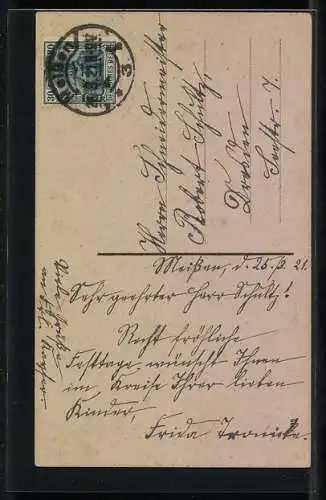 Meißen
3
30
Herrn Schneidermeister
Robert Schultz,
Dresden
Seestr. 7.
Meißen, d. 25.3.21.
Sehr geehrter Herr Schultz!
Recht fröhliche
Festtage wünscht Ihnen
im Kreise Ihrer lieben
Kinder,
Frida Tronicke.
Viele Grüße